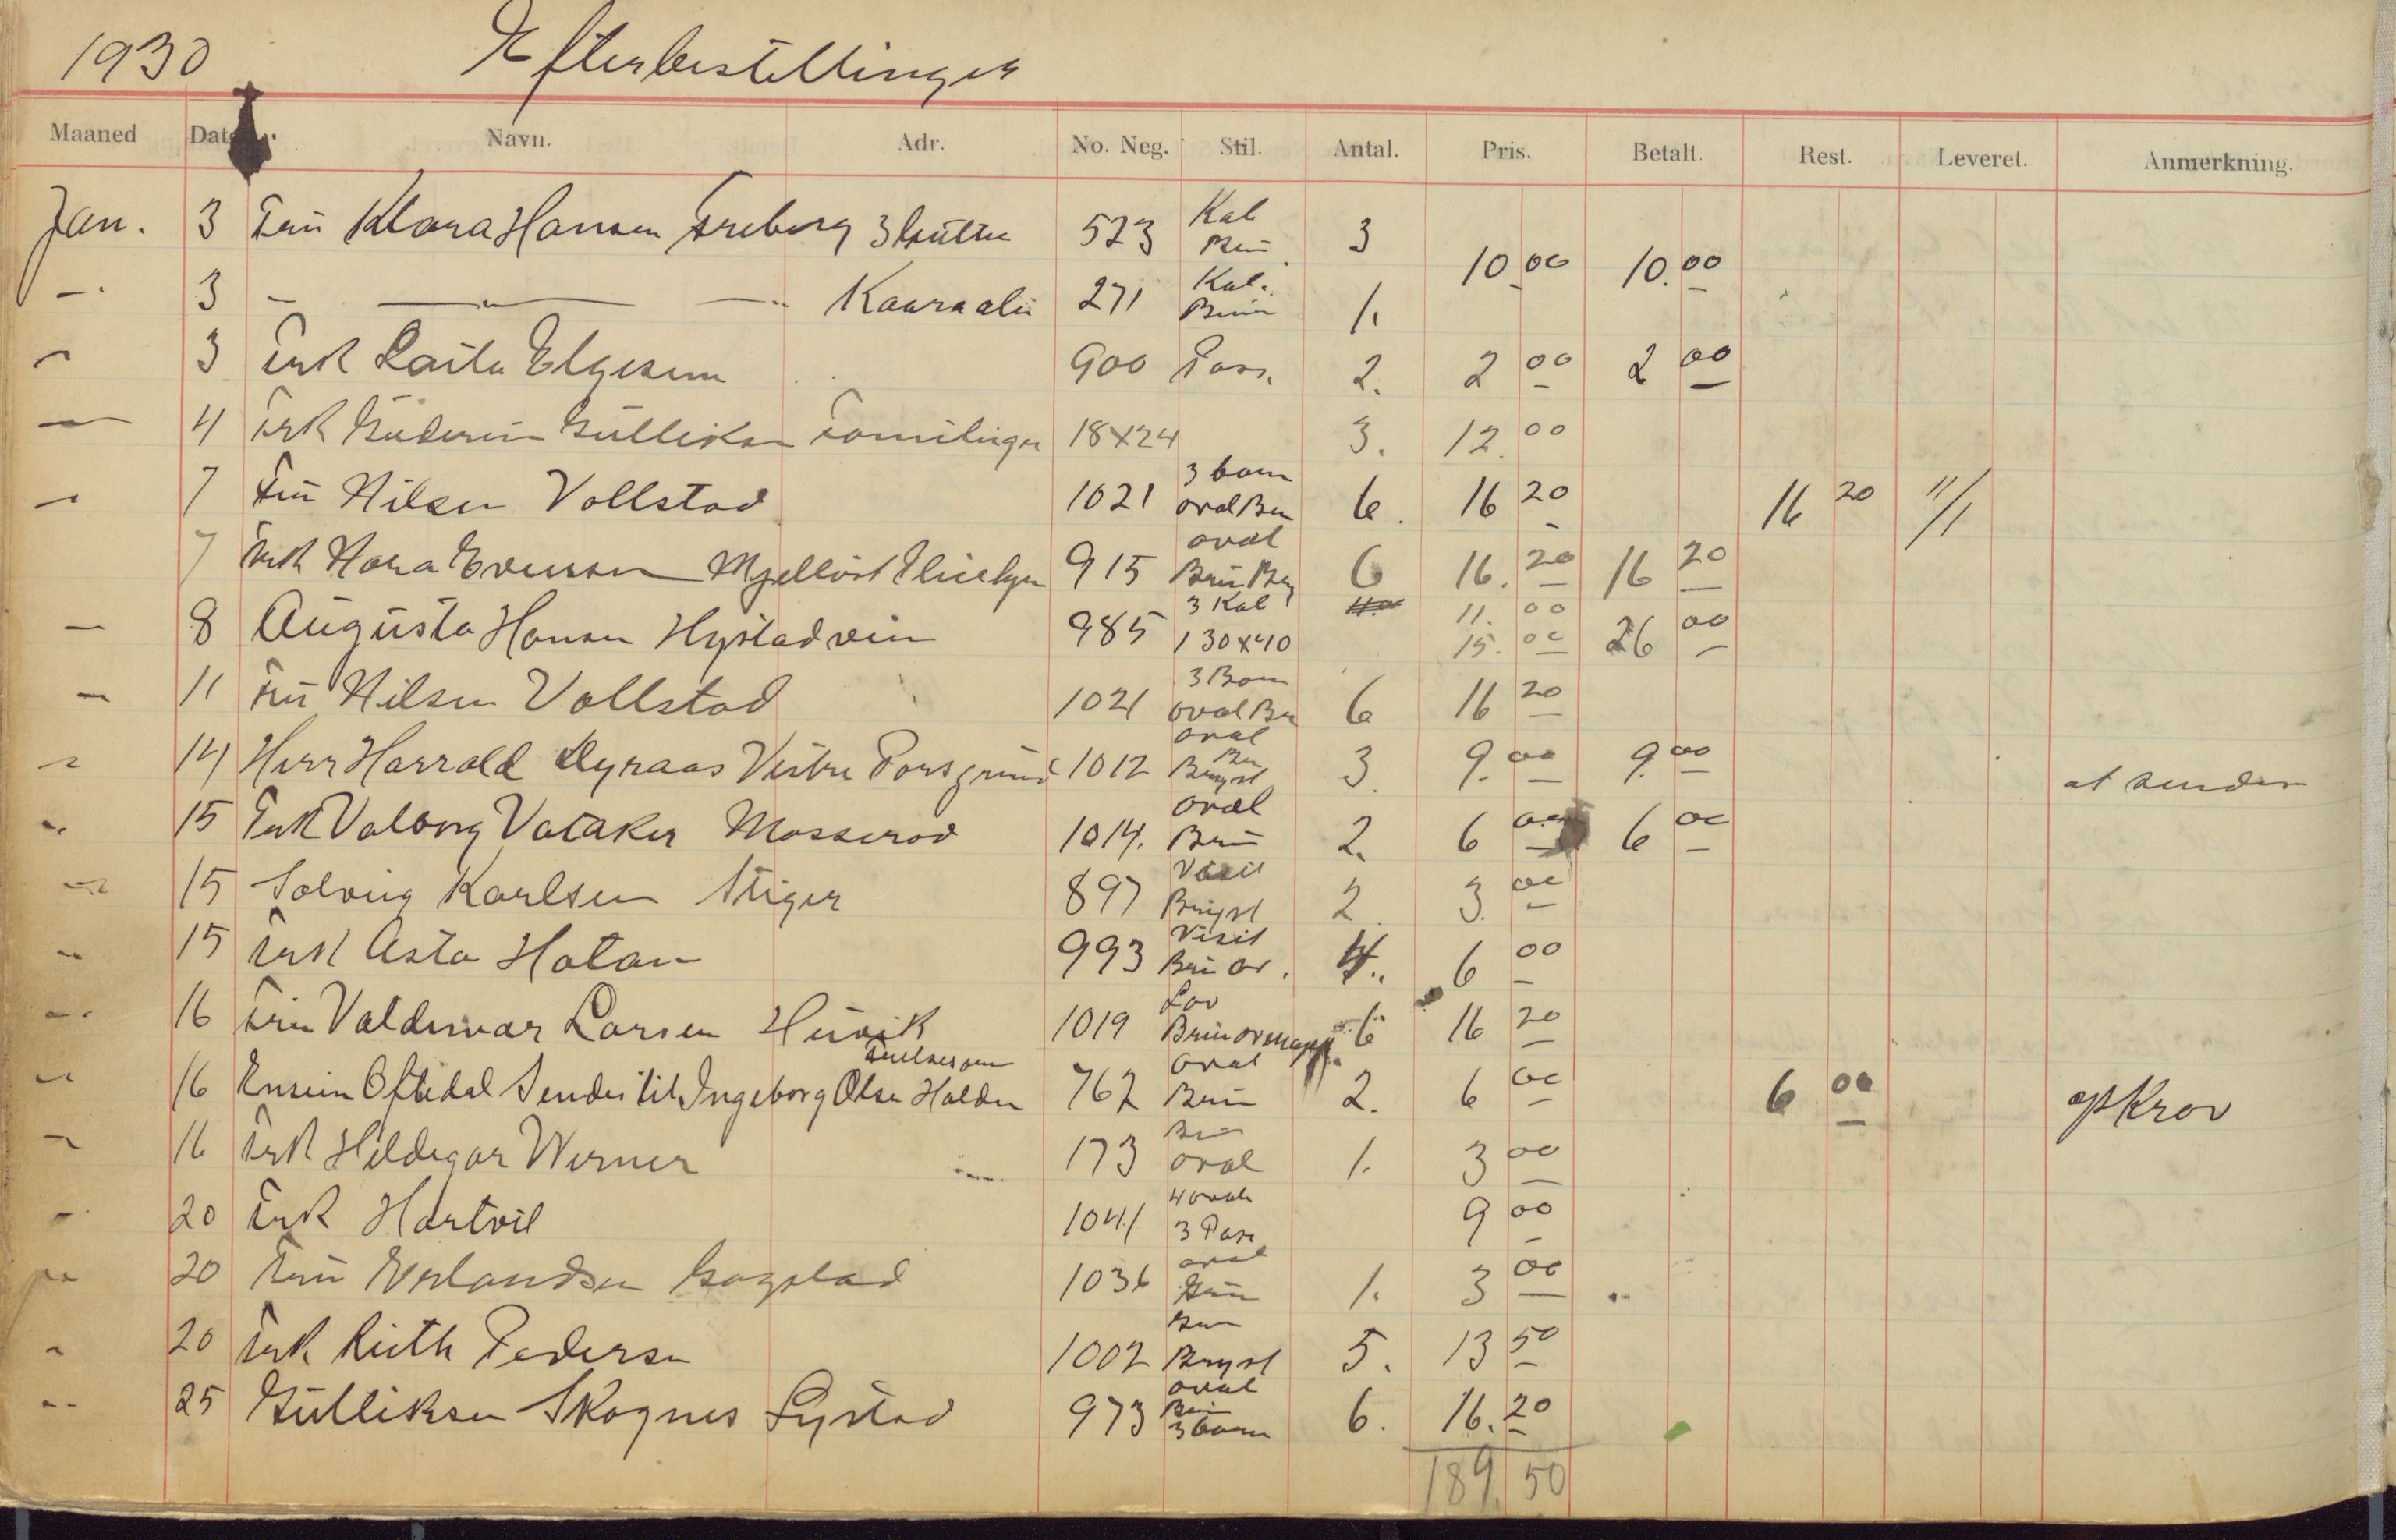 1930 Efterbestillinger
Maaned Dat Navn. Adr. No. Neg. Stil. Antal. Pris. Betalt. Rest. Leveret. Anmerkning.
Jan. 3 Frü Klara Hansen Freberg 523 Kab Brün 3
10 00 10.00
3 271 Kab. Brün 1.
3 Frk Laila Elgesem 900 Pass. 2. 2 00 2 00
4 Frk Gülliksen 18x24 3. 12.00
7 Frü Nilsen Vollstad 1021 3 barn oval Brün 6. 16 20 16 20 11/1
7 Frk Evensen 915 oval Brün 6 16.20 16 20
8 Augüsta Hansen Hystadvein 985 3 Kab 11.00
1 30x40 15.00 26 00
11 Frü Nilsen Vollstad 1021 3 Barn oval Brün 6 16 20
14 Herr Harrald Porsgründ 1012 oval Brün Bryst 3. 9.00 9.00 at sender
15 Frk Valborg Vataker Mosserød 1014. oval Brün 2. 6 00 6 00
15 Solveig Karlsen 897 Visit Bryst 2. 3.00
15 Frk Asta Hotan 993 Visit Brün ov. 4. 6 00
16 Frü Valdemar Larsen Hüvik 1019 Brün 6 16 20
16 Oftedal Sendes til Ingeborg Olsen Halden 762 oval Brün 2. 6 00 6 00 opkrav
16 Frk Hildegar Werner 173 Brün oval 1. 3 00
20 Frk Hartvil 1041 4 ovale 3 Pass 9 00
20 Frü Erlandsen 1036 oval Brün 1. 3 00
20 Frk Rüth Pedersen 1002 Brün Bryst 5. 13 50
25 Gülliksen Skagnes Lystad 973 oval Brün 3 barn 6. 16.20
189.50